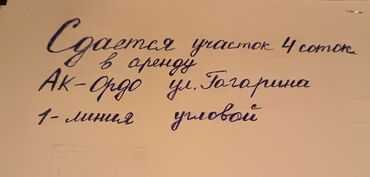 Сдается участок 4 соток
в аренду
Ак-Ордо ул. Гагарина
1-линия угловой